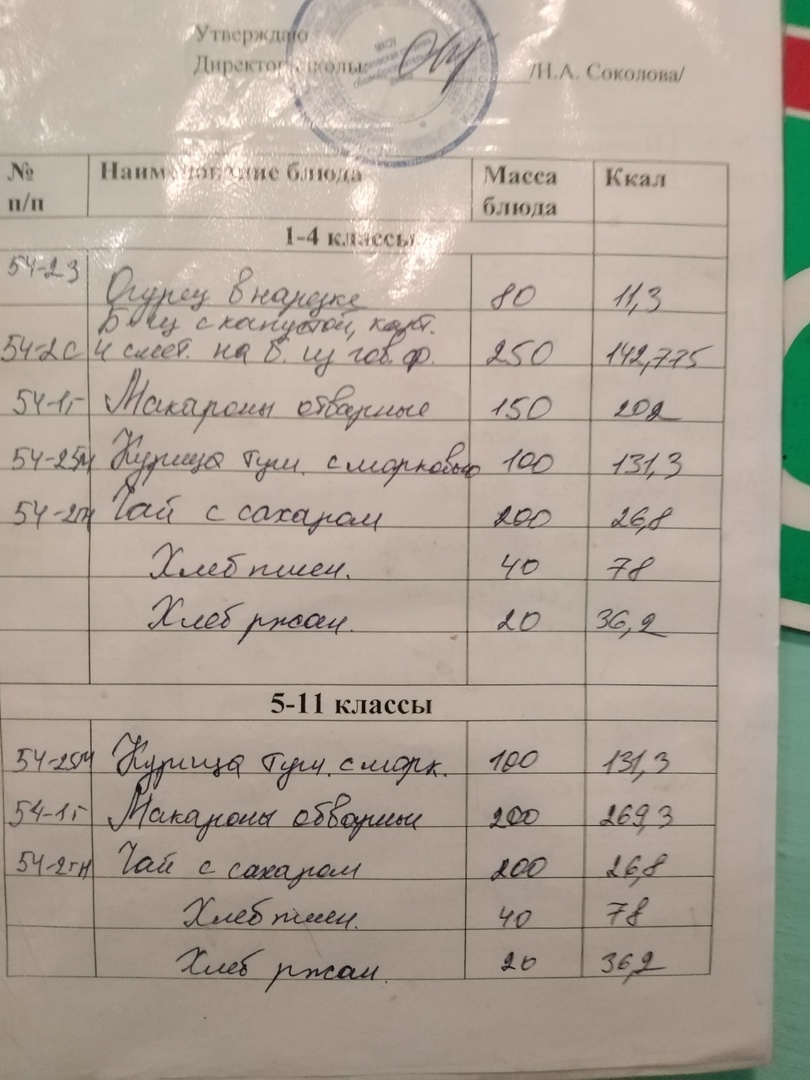 Утверждаю
Директор школы /Н.А. Соколова/
№ п/п Наименование блюда Масса блюда Ккал
1-4 классы
54-2з Огурец в нарезке 80 11,3
Б-щ с капустой, карт.
54-2с и смет. на б. из гов. ф. 250 142,775
54-1г Макароны отварные 150 202
54-25м Курица туш. с морковью 100 131,3
54-2гн Чай с сахаром 200 26,8
Хлеб пшен. 40 78
Хлеб ржан. 20 36,2
5-11 классы
54-25м Курица туш. с морк. 100 131,3
54-1г Макароны отварные 200 269,3
54-2гн Чай с сахаром 200 26,8
Хлеб пшен. 40 78
Хлеб ржан. 20 36,2